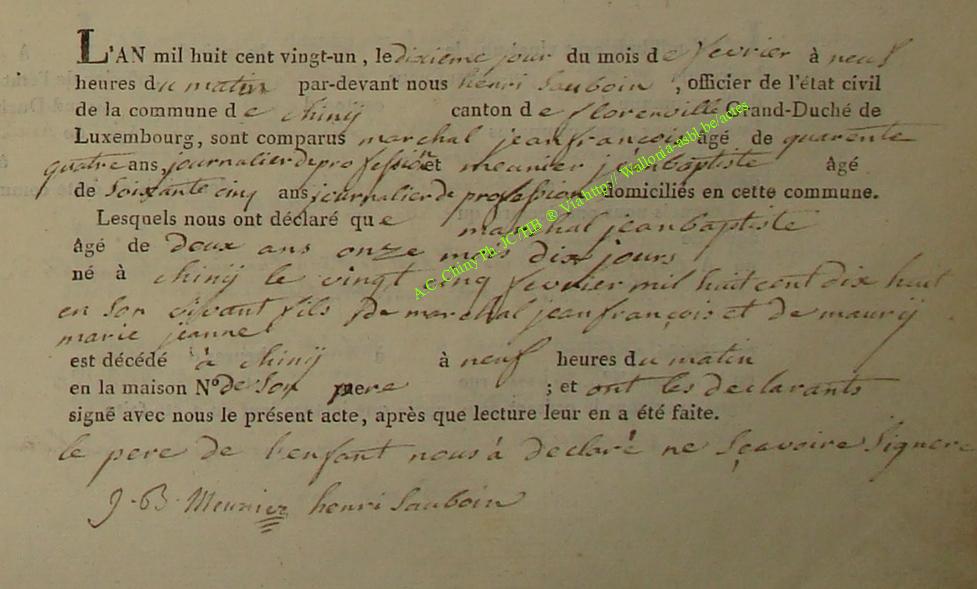 L'AN mil huit cent vingt-un, le dixieme jour du mois de fevrier à neuf
heures du matin par-devant nous henri Sauboin, officier de l'état civil
de la commune de chinÿ canton de florenville Grand-Duché de
Luxembourg, sont comparus marchal jean françois âgé de quarente
quatre ans, journalier de profession et meunier jean baptiste âgé
de soixante cinq ans journalier de profession domiciliés en cette commune.
Lesquels nous ont déclaré que marchal jean baptiste
âgé de doux ans onze mois dix jours
né à chinÿ le vingt cinq fevrier mil huit cent dix huit
en son vivant fils de marchal jean françois et de maurÿ
marie jeanne
est décédé à chinÿ à neuf heures du matin
en la maison N° de son pere ; et ont les declarants
signé avec nous le présent acte, après que lecture leur en a été faite.
le pere de l'enfant nous à declaré ne sçavoire signere
J. B. Meunier henri Sauboin
A.C. Chiny Ph. JC/HB ® Via http// Wallonia-asbl.be/actes